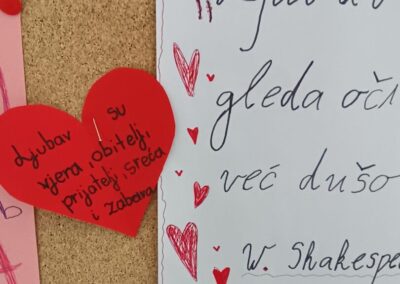 Ljubav su
vjera, obitelj,
prijatelji, sreća
i zabava
gleda oči
već dušo
W. Shakespe